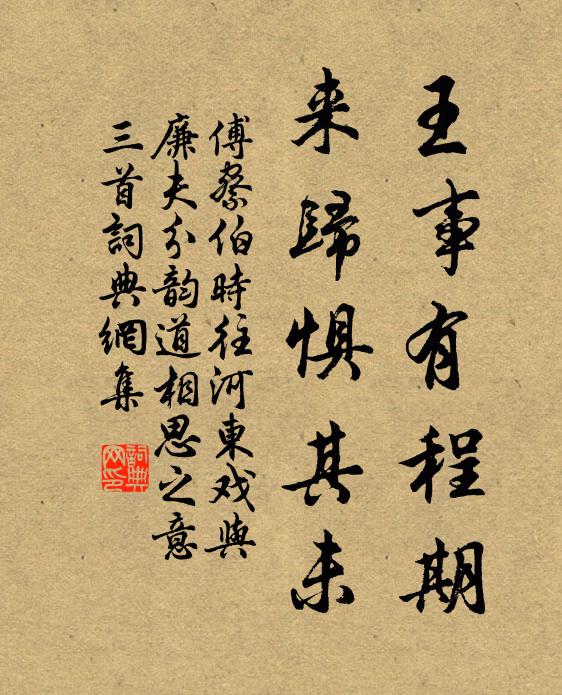 王事有程期
来歸惧其未
傅察伯時往河東戏與
廉夫分韵道相思之意
三首詞典網集
詞典网印